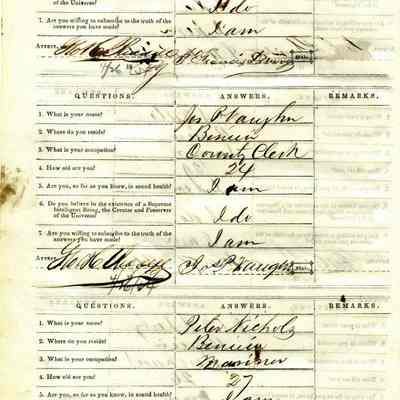 of the Universe?
I do
7. Are you willing to subscribe to the truth of the
answers you have made?
I am
Attest,
QUESTIONS. ANSWERS. REMARKS.
1. What is your name? Jos P Vaughn
2. Where do you reside? Benicia
3. What is your occupation? County Clerk
4. How old are you? 24
5. Are you, so far as you know, in sound health? I am
6. Do you believe in the existence of a Supreme
Intelligent Being, the Creator and Preserver
of the Universe? I do
7. Are you willing to subscribe to the truth of the
answers you have made? I am
Attest, Jos P Vaughn
QUESTIONS. ANSWERS. REMARKS.
1. What is your name? Peter Nichols
2. Where do you reside? Benicia
3. What is your occupation? Mariner
4. How old are you? 27
5. Are you, so far as you know, in sound health? I am